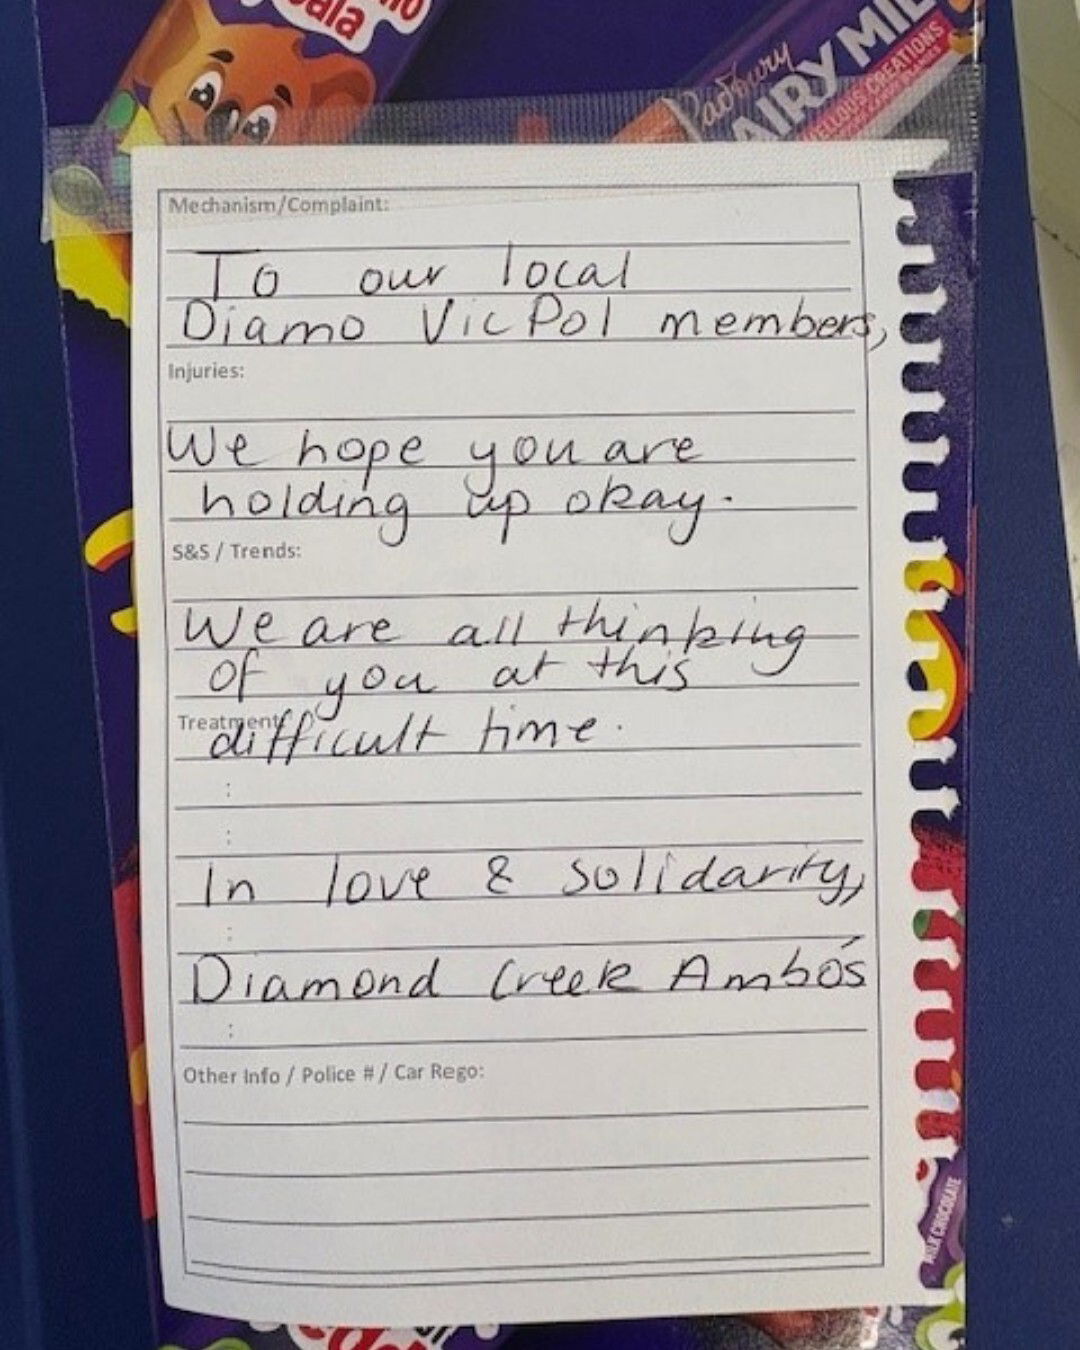 ala
Cadbury
AIRY MIL
ELLOUS CREATIONS
Mechanism/Complaint:
To our local
Diamo VicPol members,
Injuries:
We hope you are
holding up okay.
S&S / Trends:
We are all thinking
of you at this
Treatment
difficult time.
:
:
In love & solidarity,
:
Diamond Creek Ambo's
:
Other Info / Police # / Car Rego:
MILK CHOCOLATE